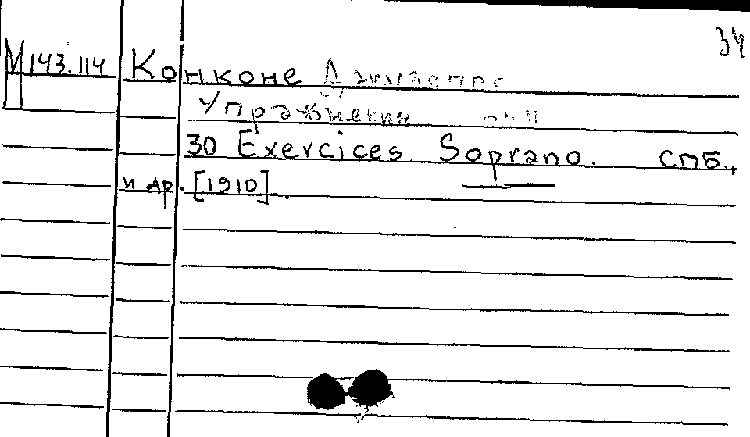 34
М 143.114 Конконе Джузеппе
Упражнения
30 Exercices. Soprano. СПБ.,
и др. [1910].